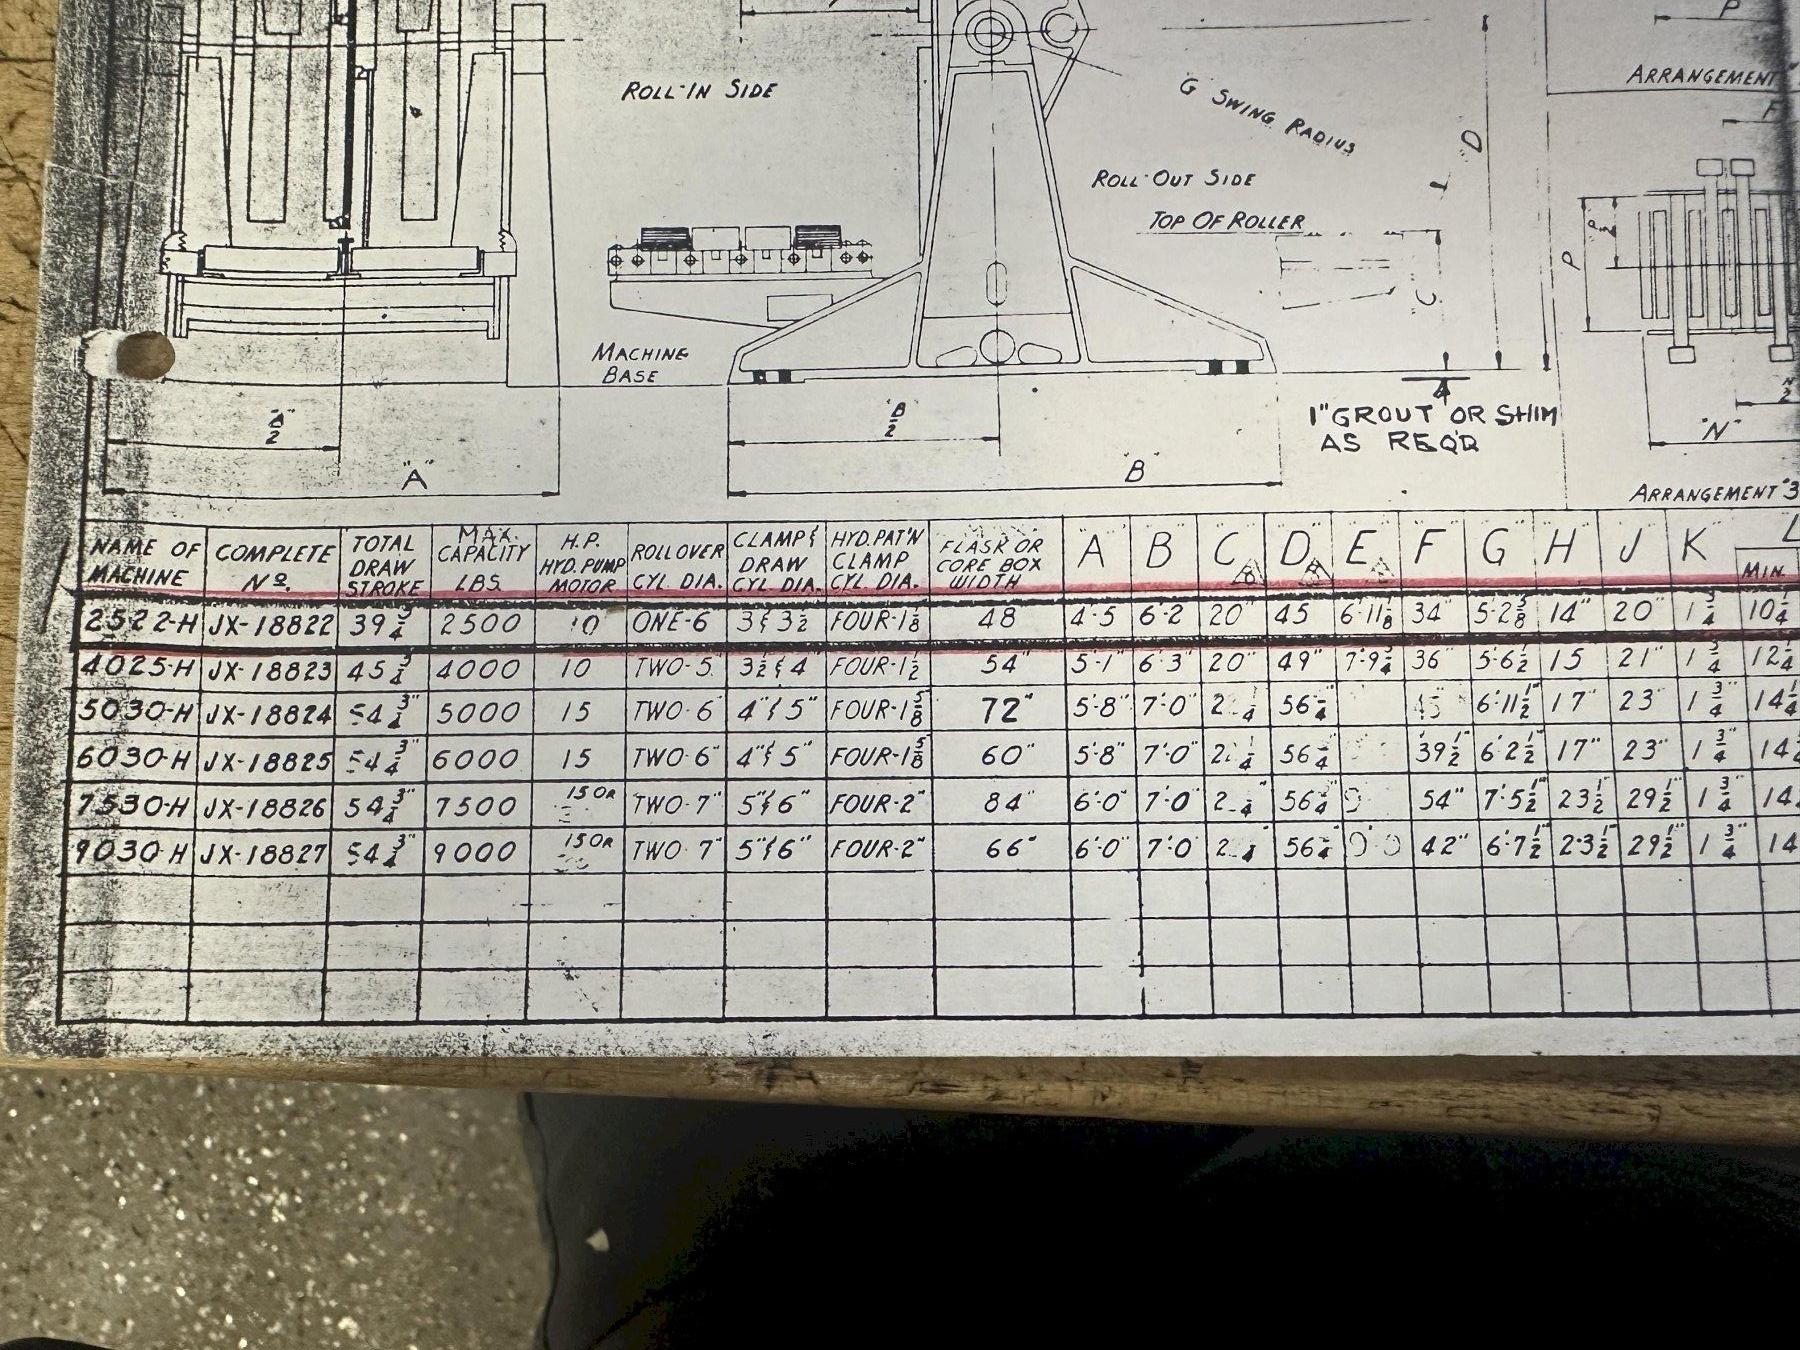 P
ROLL-IN SIDE
"G" SWING RADIUS
"D"
ARRANGEMENT
F
ROLL-OUT SIDE
TOP OF ROLLER
C
P
P/2
MACHINE
BASE
"A"/2
"B"/2
1" GROUT OR SHIM
AS REQ'D
N/2
"N"
"A"
"B"
ARRANGEMENT #3
NAME OF MACHINE COMPLETE Nº. TOTAL DRAW STROKE MAX. CAPACITY LBS. H.P. HYD. PUMP MOTOR ROLLOVER CYL. DIA. CLAMP & DRAW CYL. DIA. HYD. PAT'N CLAMP CYL. DIA. FLASK OR CORE BOX WIDTH "A" "B" "C" "D" "E" "F" "G" "H" "J" "K" L MIN.
2522-H JX-18822 39 3/4 2500 10 ONE-6 3 & 3 1/2 FOUR-1 1/8 48 4-5 6-2 20" 45 6-11 1/8 34" 5-2 5/8 14" 20" 1 3/4 10 1/4
4025-H JX-18823 45 3/4 4000 10 TWO-5 3 1/2 & 4" FOUR-1 1/2 54" 5'-1" 6'-3" 20" 49" 7-9 1/4 36" 5-6 1/2 15 21" 1 3/4 12 1/4
5030-H JX-18824 54 3/4" 5000 15 TWO-6" 4" & 5" FOUR-1 5/8 72" 5'-8" 7'-0" 56 1/4 6'-11 1/2" 17" 23" 1 3/4 14 1/4
6030-H JX-18825 54 3/4" 6000 15 TWO-6" 4" & 5" FOUR-1 5/8 60" 5'-8" 7'-0" 56 1/4 39 1/2" 6'-2 1/2" 17" 23" 1 3/4" 14
7530-H JX-18826 54 3/4" 7500 15 OR TWO-7" 5" & 6" FOUR-2" 84" 6'-0" 7'-0" 56 1/4" 54" 7'-5 1/2" 23 1/2" 29 1/2" 1 3/4" 14
9030-H JX-18827 54 3/4" 9000 15 OR TWO-7" 5" & 6" FOUR-2" 66" 6'-0" 7'-0" 56 1/4" 42" 6'-7 1/2" 23 1/2" 29 1/2" 1 3/4" 14